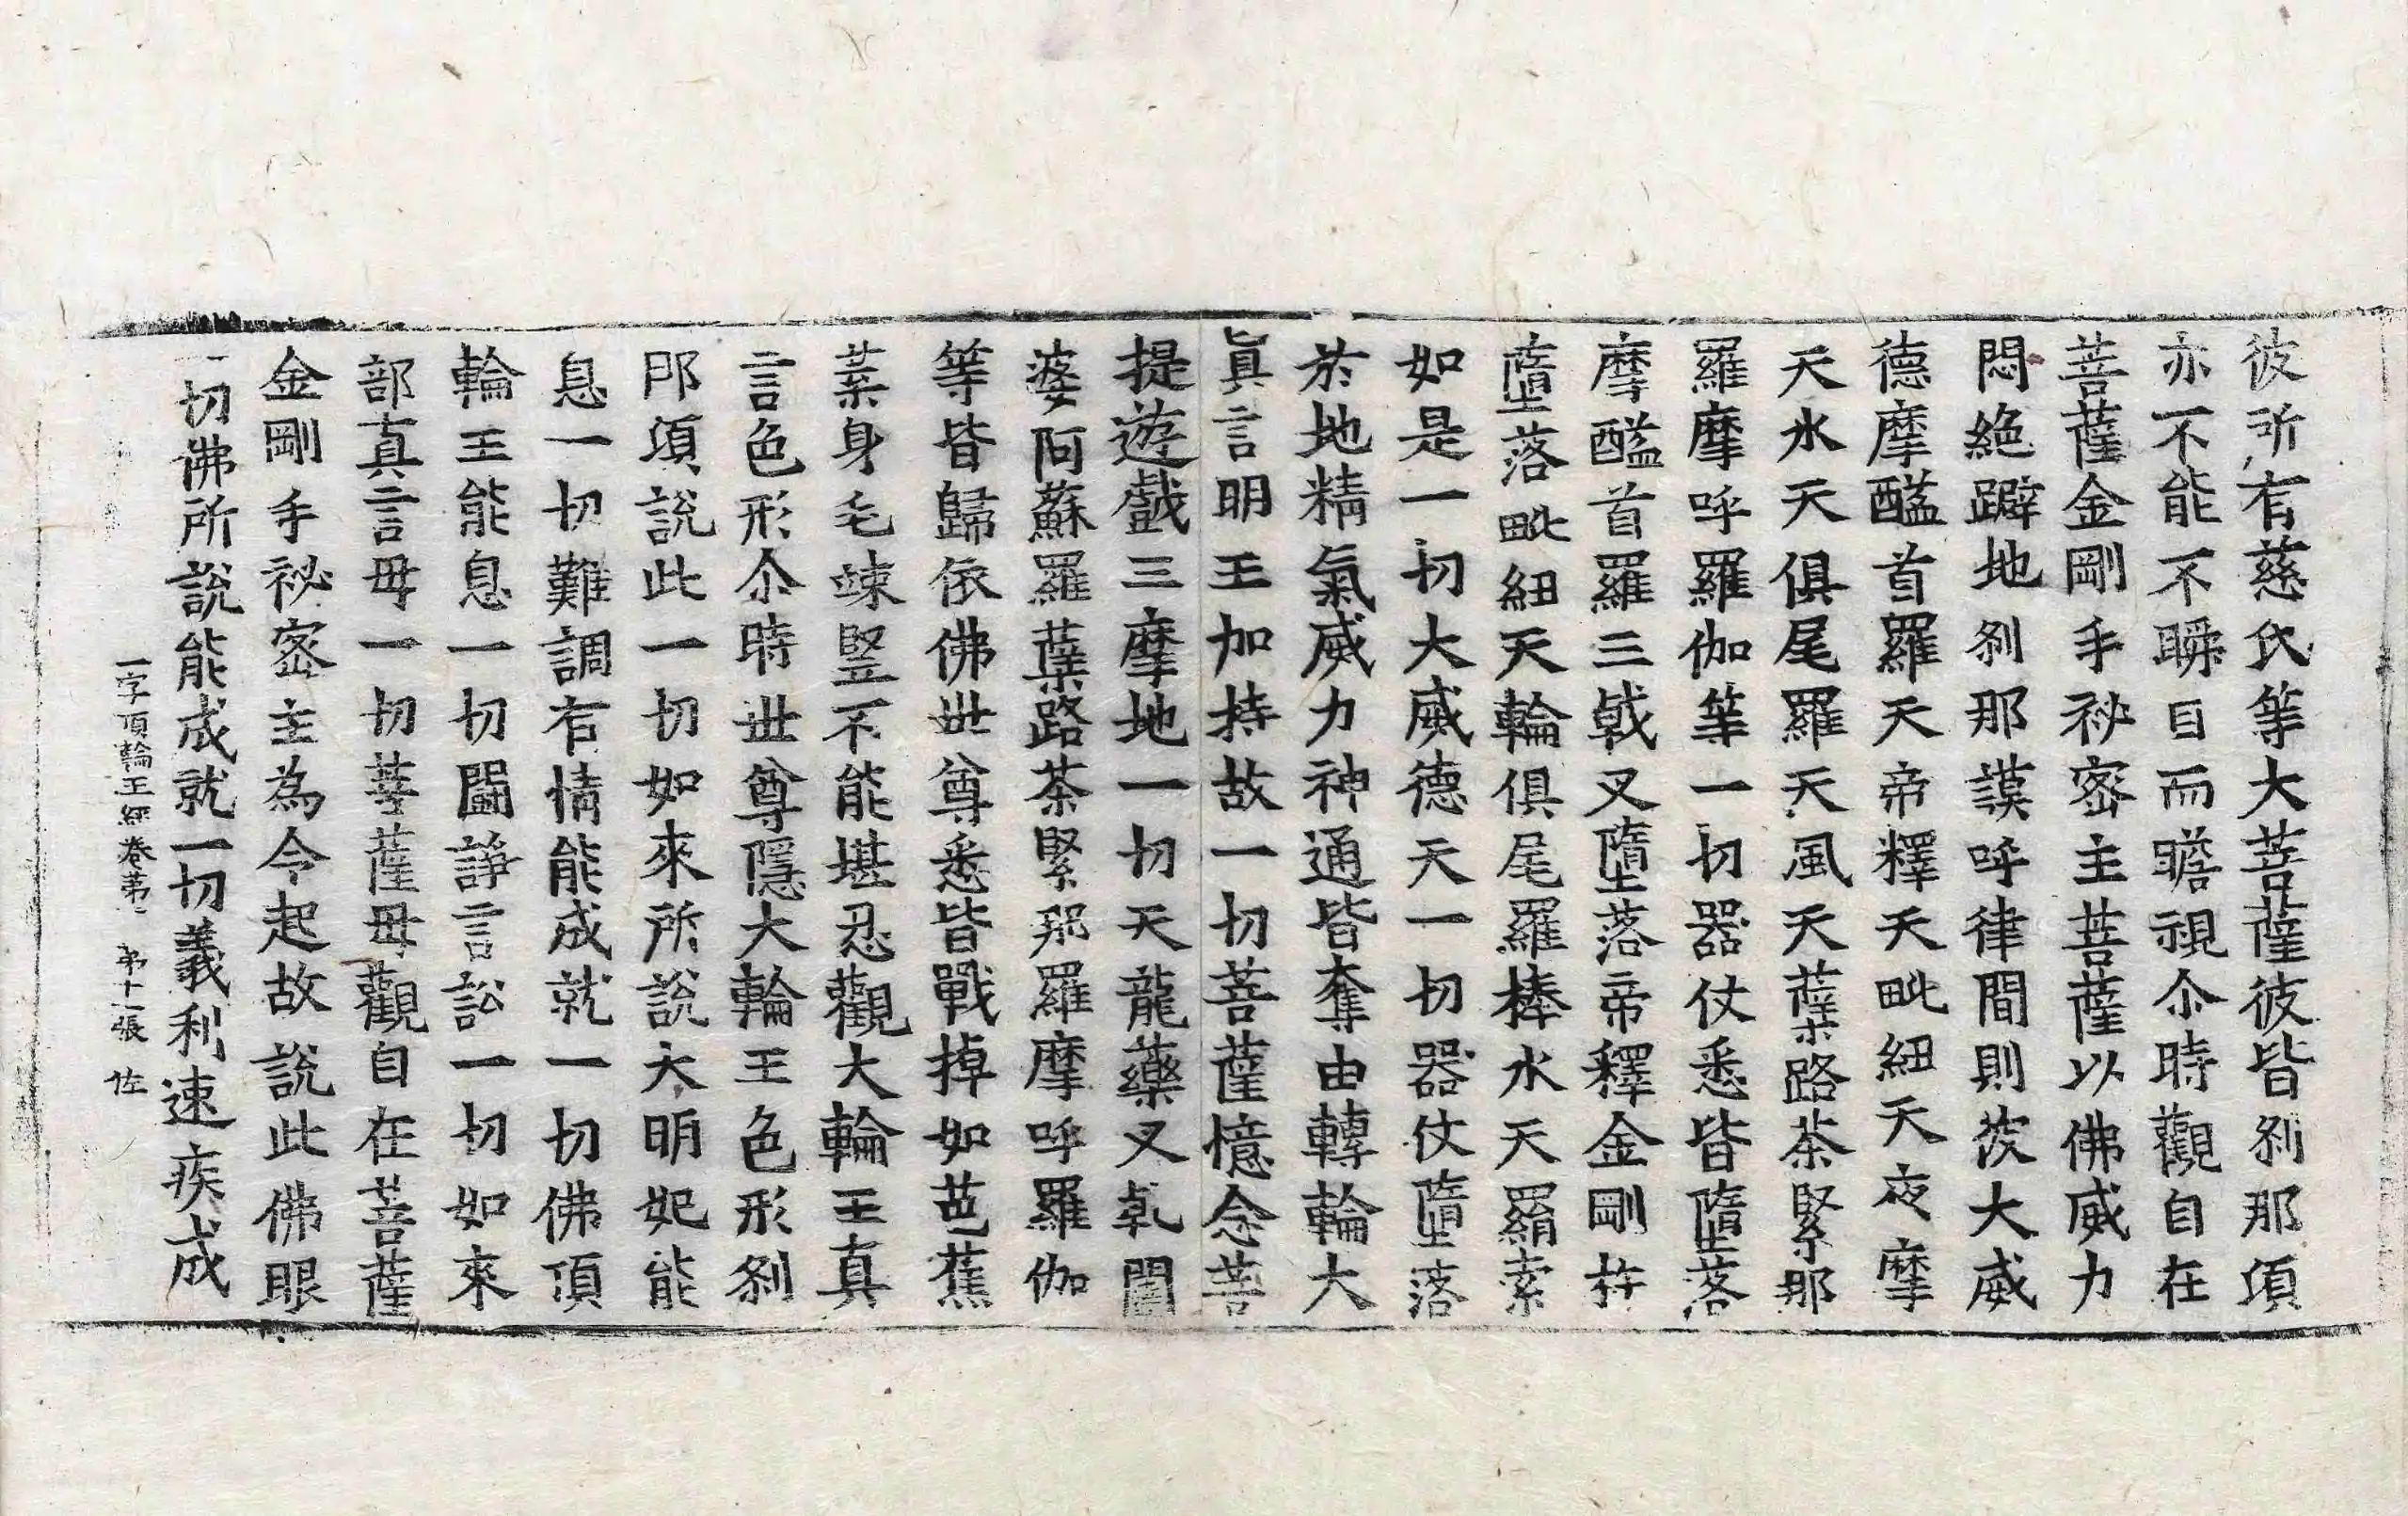 彼所有慈氏等大菩薩彼皆刹那頃
亦不能不瞬目而瞻視尒時觀自在
菩薩金剛手祕密主菩薩以佛威力
悶絕躃地刹那謨呼律間則茨大威
德摩醯首羅天帝釋天毗紐天夜摩
天水天俱尾羅天風天蘗路荼緊那
羅摩呼羅伽等一切器仗悉皆墮落
摩醯首羅三戟叉墮落帝釋金剛杵
墮落毗紐天輪俱尾羅棒水天羂索
如是一切大威德天一切器仗墮落
於地精氣威力神通皆奪由轉輪大
眞言明王加持故一切菩薩憶念菩
提遊戲三摩地一切天龍藥叉乹闥
婆阿蘇羅蘗路荼緊那羅摩呼羅伽
等皆歸依佛世尊悉皆戰掉如芭蕉
葉身毛竦竪不能堪忍觀大輪王真
言色形尒時世尊隱大輪王色形刹
那頃說此一切如來所說大明妃能
息一切難調有情能成就一切佛頂
輪王能息一切鬪諍言訟一切如來
部真言母一切菩薩母觀自在菩薩
金剛手祕密主為令起故說此佛眼
一切佛所說能成就一切義利速疾成
一字頂輪王經卷第一 第十一張 佐